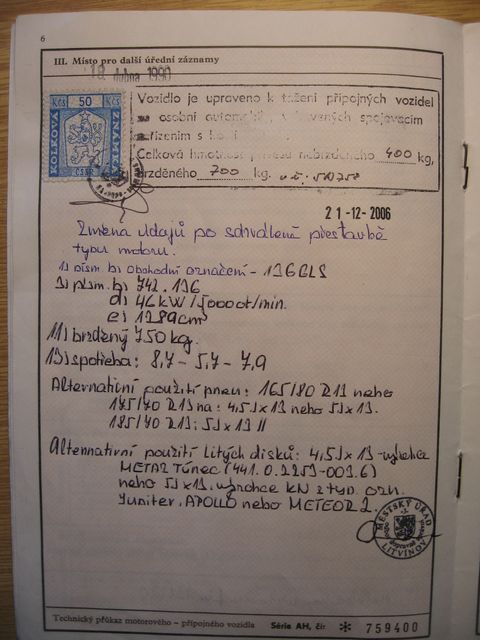 6
III. Místo pro další úřední záznamy
18. dubna 1990
Kčs 50 Kčs
KOLKOVÁ
ZNÁMKA
ČSSR
Vozidlo je upraveno k tažení přípojných vozidel
za osobní automobily, vybavených spojovacím
zařízením s
Celková hmotnost přívěsu nebrzděného 400 kg,
brzděného 700 kg.
21-12-2006
Změna údajů po schválené přestavbě
typu motoru.
1) písm. b) Obchodní označení - 136GLS
2) písm. b) 742.136
d) 46kW/5000ot/min.
e) 1289cm³
11) brzděný 750 kg.
13) spotřeba: 8,7 - 5,7 - 7,9
Alternativní použití pneu: 165/80 R13 nebo
175/70 R13 na: 4,5Jx13 nebo 5Jx13.
185/70 R13; 5Jx13 !!
Alternativní použití litých disků: 4,5Jx13 - výrobce
METAZ Týnec (441.0.2251-001.6)
nebo 5Jx13, výrobce KN z typ. ozn.
Jupiter, APOLLO nebo METEOR 2.
MĚSTSKÝ ÚŘAD
LITVÍNOV
Technický průkaz motorového - přípojného vozidla Série AH, čís. ✻ 759400